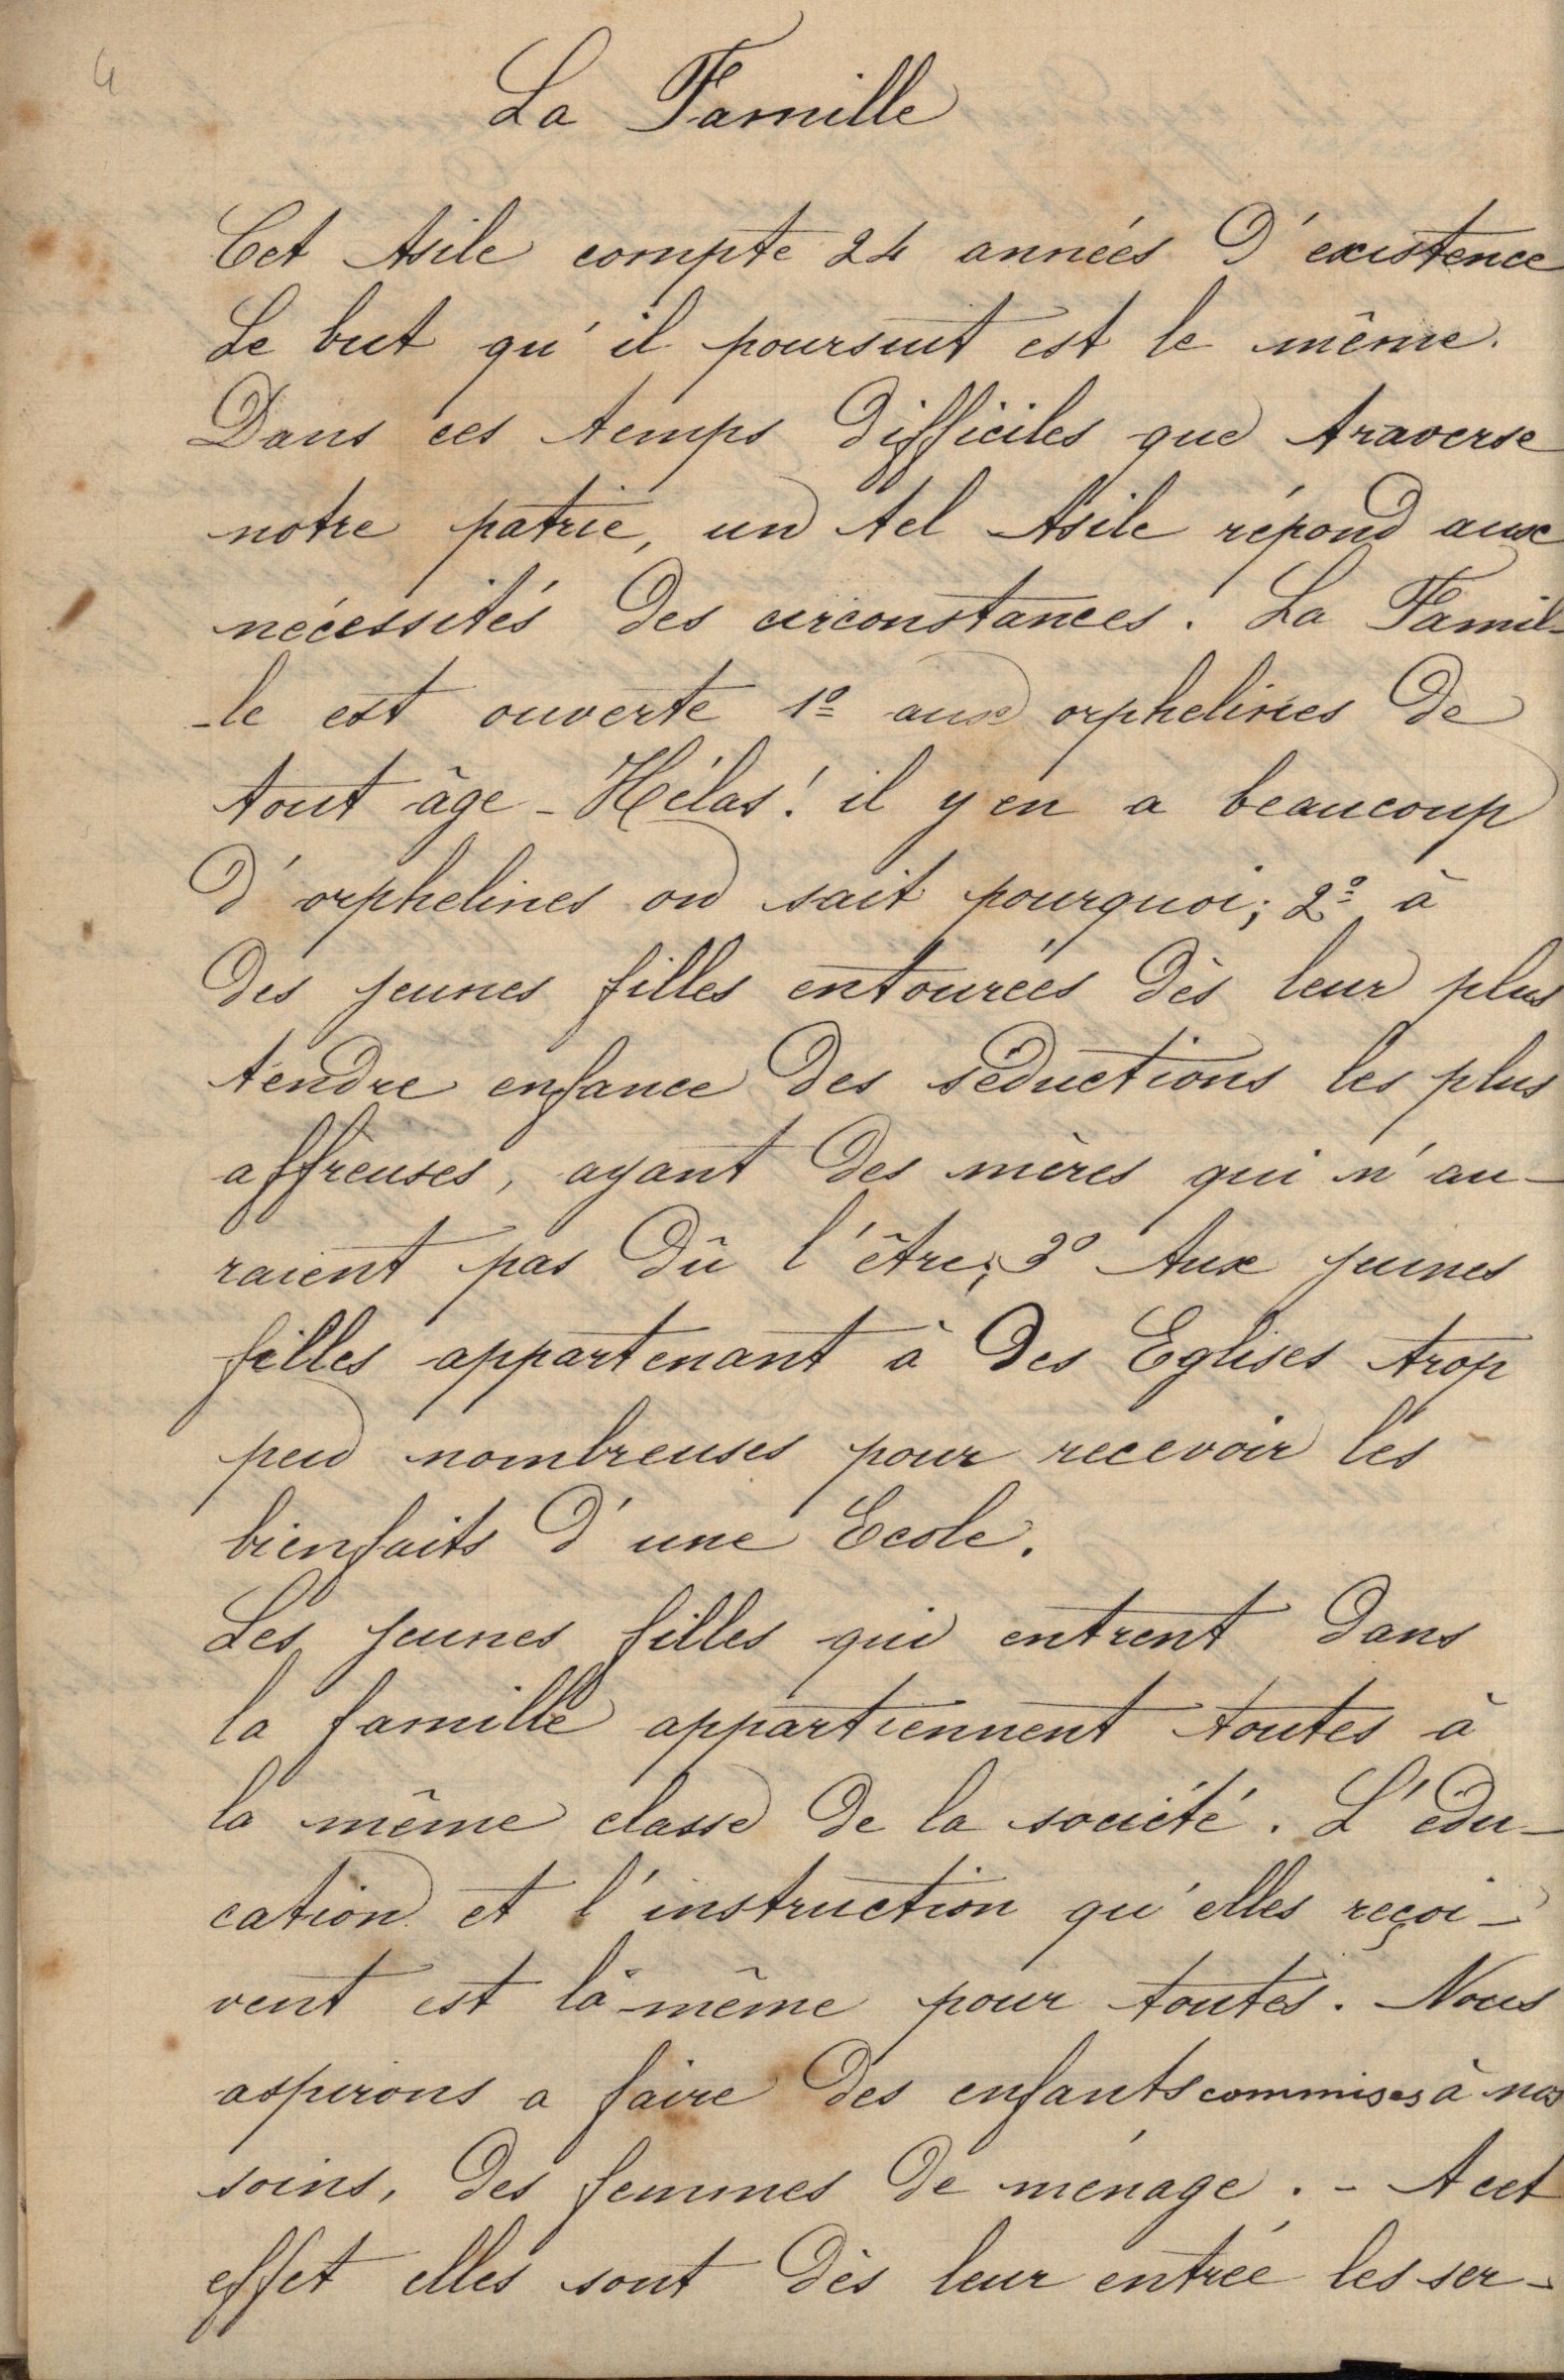 4
La Famille
Cet Asile compte 24 années d'existence
Le but qu'il poursuit est le même.
Dans ces temps difficiles que traverse
notre patrie, un tel Asile répond aux
nécessités des circonstances. La Famil-
-le est ouverte 1º aux orphelines de
tout âge - Hélas! il y en a beaucoup
d'orphelines on sait pourquoi; 2º à
des jeunes filles entourées dès leur plus
tendre enfance des séductions les plus
affreuses, ayant des mères qui n'au-
raient pas dû l'être; 3º Aux jeunes
filles appartenant à des Eglises trop
peu nombreuses pour recevoir les
bienfaits d'une Ecole.
Les jeunes filles qui entrent dans
la famille appartiennent toutes à
la même classe de la société. L'édu-
cation et l'instruction qu'elles reçoi-
vent est la même pour toutes. Nous
aspirons a faire des enfants commises à nos
soins, des femmes de ménage. - A cet
effet elles sont dès leur entrée les ser-